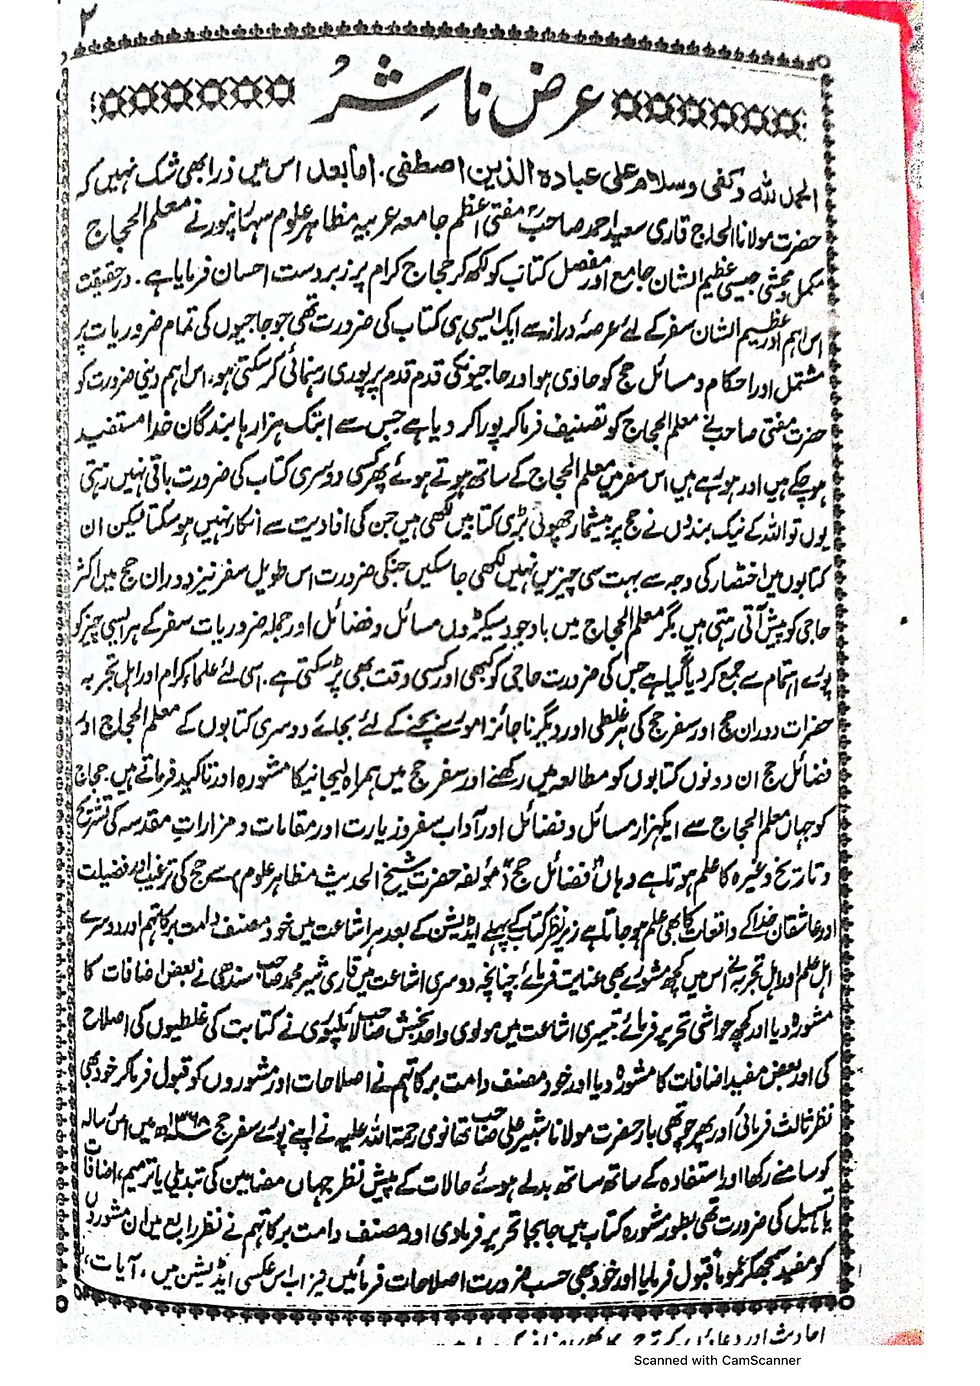 ۲
عرض ناشر
الحمد للہ وکفی وسلام علی عبادہ الذین اصطفی . اما بعد اس میں ذرا بھی شک نہیں کہ
حضرت مولانا الحاج قاری سعید احمد صاحبؒ مفتی اعظم جامعہ عربیہ مظاہر علوم سہارنپور نے معلم الحجاج
مکمل ومحشی جیسی عظیم الشان جامع اور مفصل کتاب کو لکھ کر حجاج کرام پر زبردست احسان فرمایا ہے . درحقیقت
اس اہم اور عظیم الشان سفر کے لئے عرصۂ دراز سے ایک ایسی ہی کتاب کی ضرورت تھی جو حاجیوں کی تمام ضروریات پر
مشتمل اور احکام و مسائل حج کو حاوی ہو اور حاجیونکی قدم قدم پر پوری رہنمائی کر سکتی ہو، اس اہم دینی ضرورت کو
حضرت مفتی صاحب نے معلم الحجاج کو تصنیف فرما کر پورا کر دیا ہے جس سے ابتک ہزارہا بندگان خدا مستفید
ہو چکے ہیں اور ہو رہے ہیں اس سفر میں معلم الحجاج کے ساتھ ہوتے ہوئے پھر کسی دوسری کتاب کی ضرورت باقی نہیں رہتی
یوں تو اللہ کے نیک بندوں نے حج پر بیشمار چھوٹی بڑی کتابیں لکھی ہیں جن کی افادیت سے انکار نہیں ہو سکتا لیکن ان
کتابوں میں اختصار کی وجہ سے بہت سی چیزیں نہیں لکھی جا سکیں جنکی ضرورت اس طویل سفر نیز دوران حج میں اکثر
حاجی کو پیش آتی رہتی ہیں مگر معلم الحجاج میں باوجود سیکڑوں مسائل و فضائل اور جملہ ضروریات سفر کے ہر ایسی چیز کو
پورے اہتمام سے جمع کر دیا گیا ہے جس کی ضرورت حاجی کو کبھی اور کسی وقت بھی پڑ سکتی ہے . اسی لئے علماء کرام اور اہل تجربہ
حضرات دوران حج اور سفر حج کی ہر غلطی اور دیگر ناجائز امور سے بچنے کے لئے بجائے دوسری کتابوں کے معلم الحجاج اور
فضائل حج ان دونوں کتابوں کو مطالعہ میں رکھنے اور سفر حج میں ہمراہ لیجانیکا مشورہ اور تاکید فرماتے ہیں حجاج
کو جہاں معلم الحجاج سے ایکہزار مسائل و فضائل اور آداب سفر و زیارت اور مقامات و مزارات مقدسہ کی تشریح
و تاریخ وغیرہ کا علم ہوتا ہے وہاں "فضائل حج" (مؤلفہ حضرت شیخ الحدیث مظاہر علوم) سے حج کی ترغیب اور فضیلت
اور عاشقان خدا کے واقعات کا بھی علم ہو جاتا ہے زیر نظر کتاب کے پہلے ایڈیشن کے بعد ہر اشاعت میں خود مصنف دامت برکاتہم اور دوسرے
اہل علم اور اہل تجربہ نے اس میں کچھ مشورے بھی عنایت فرمائے چنانچہ دوسری اشاعت میں قاری شیر محمد صاحب سندھی نے بعض اضافات کا
مشورہ دیا اور کچھ حواشی تحریر فرمائے تیسری اشاعت میں مولوی واحد بخش صاحب لائلپوری نے کتابت کی غلطیوں کی اصلاح
کی اور بعض مفید اضافات کا مشورہ دیا اور خود مصنف دامت برکاتہم نے اصلاحات اور مشوروں کو قبول فرما کر خود بھی
نظر ثالث فرمائی اور پھر چوتھی بار حضرت مولانا شبیر علی صاحب تھانوی رحمۃ اللہ علیہ نے اپنے پورے سفر حج ۱۳۶۸ھ میں اس رسالہ
کو سامنے رکھا اور استفادہ کے ساتھ ساتھ بدلے ہوئے حالات کے پیش نظر جہاں مضامین کی تبدیلی یا ترمیم، اضافات
یا تسہیل کی ضرورت تھی بطور مشورہ کتاب میں جابجا تحریر فرما دی اور مصنف دامت برکاتہم نے نظر رابع میں ان مشوروں
کو مفید سمجھکر عموماً قبول فرمایا اور خود بھی حسب ضرورت اصلاحات فرمائیں نیز اب اس عکسی ایڈیشن میں . آیات،
احادیث اور دعاؤں کے
Scanned with CamScanner